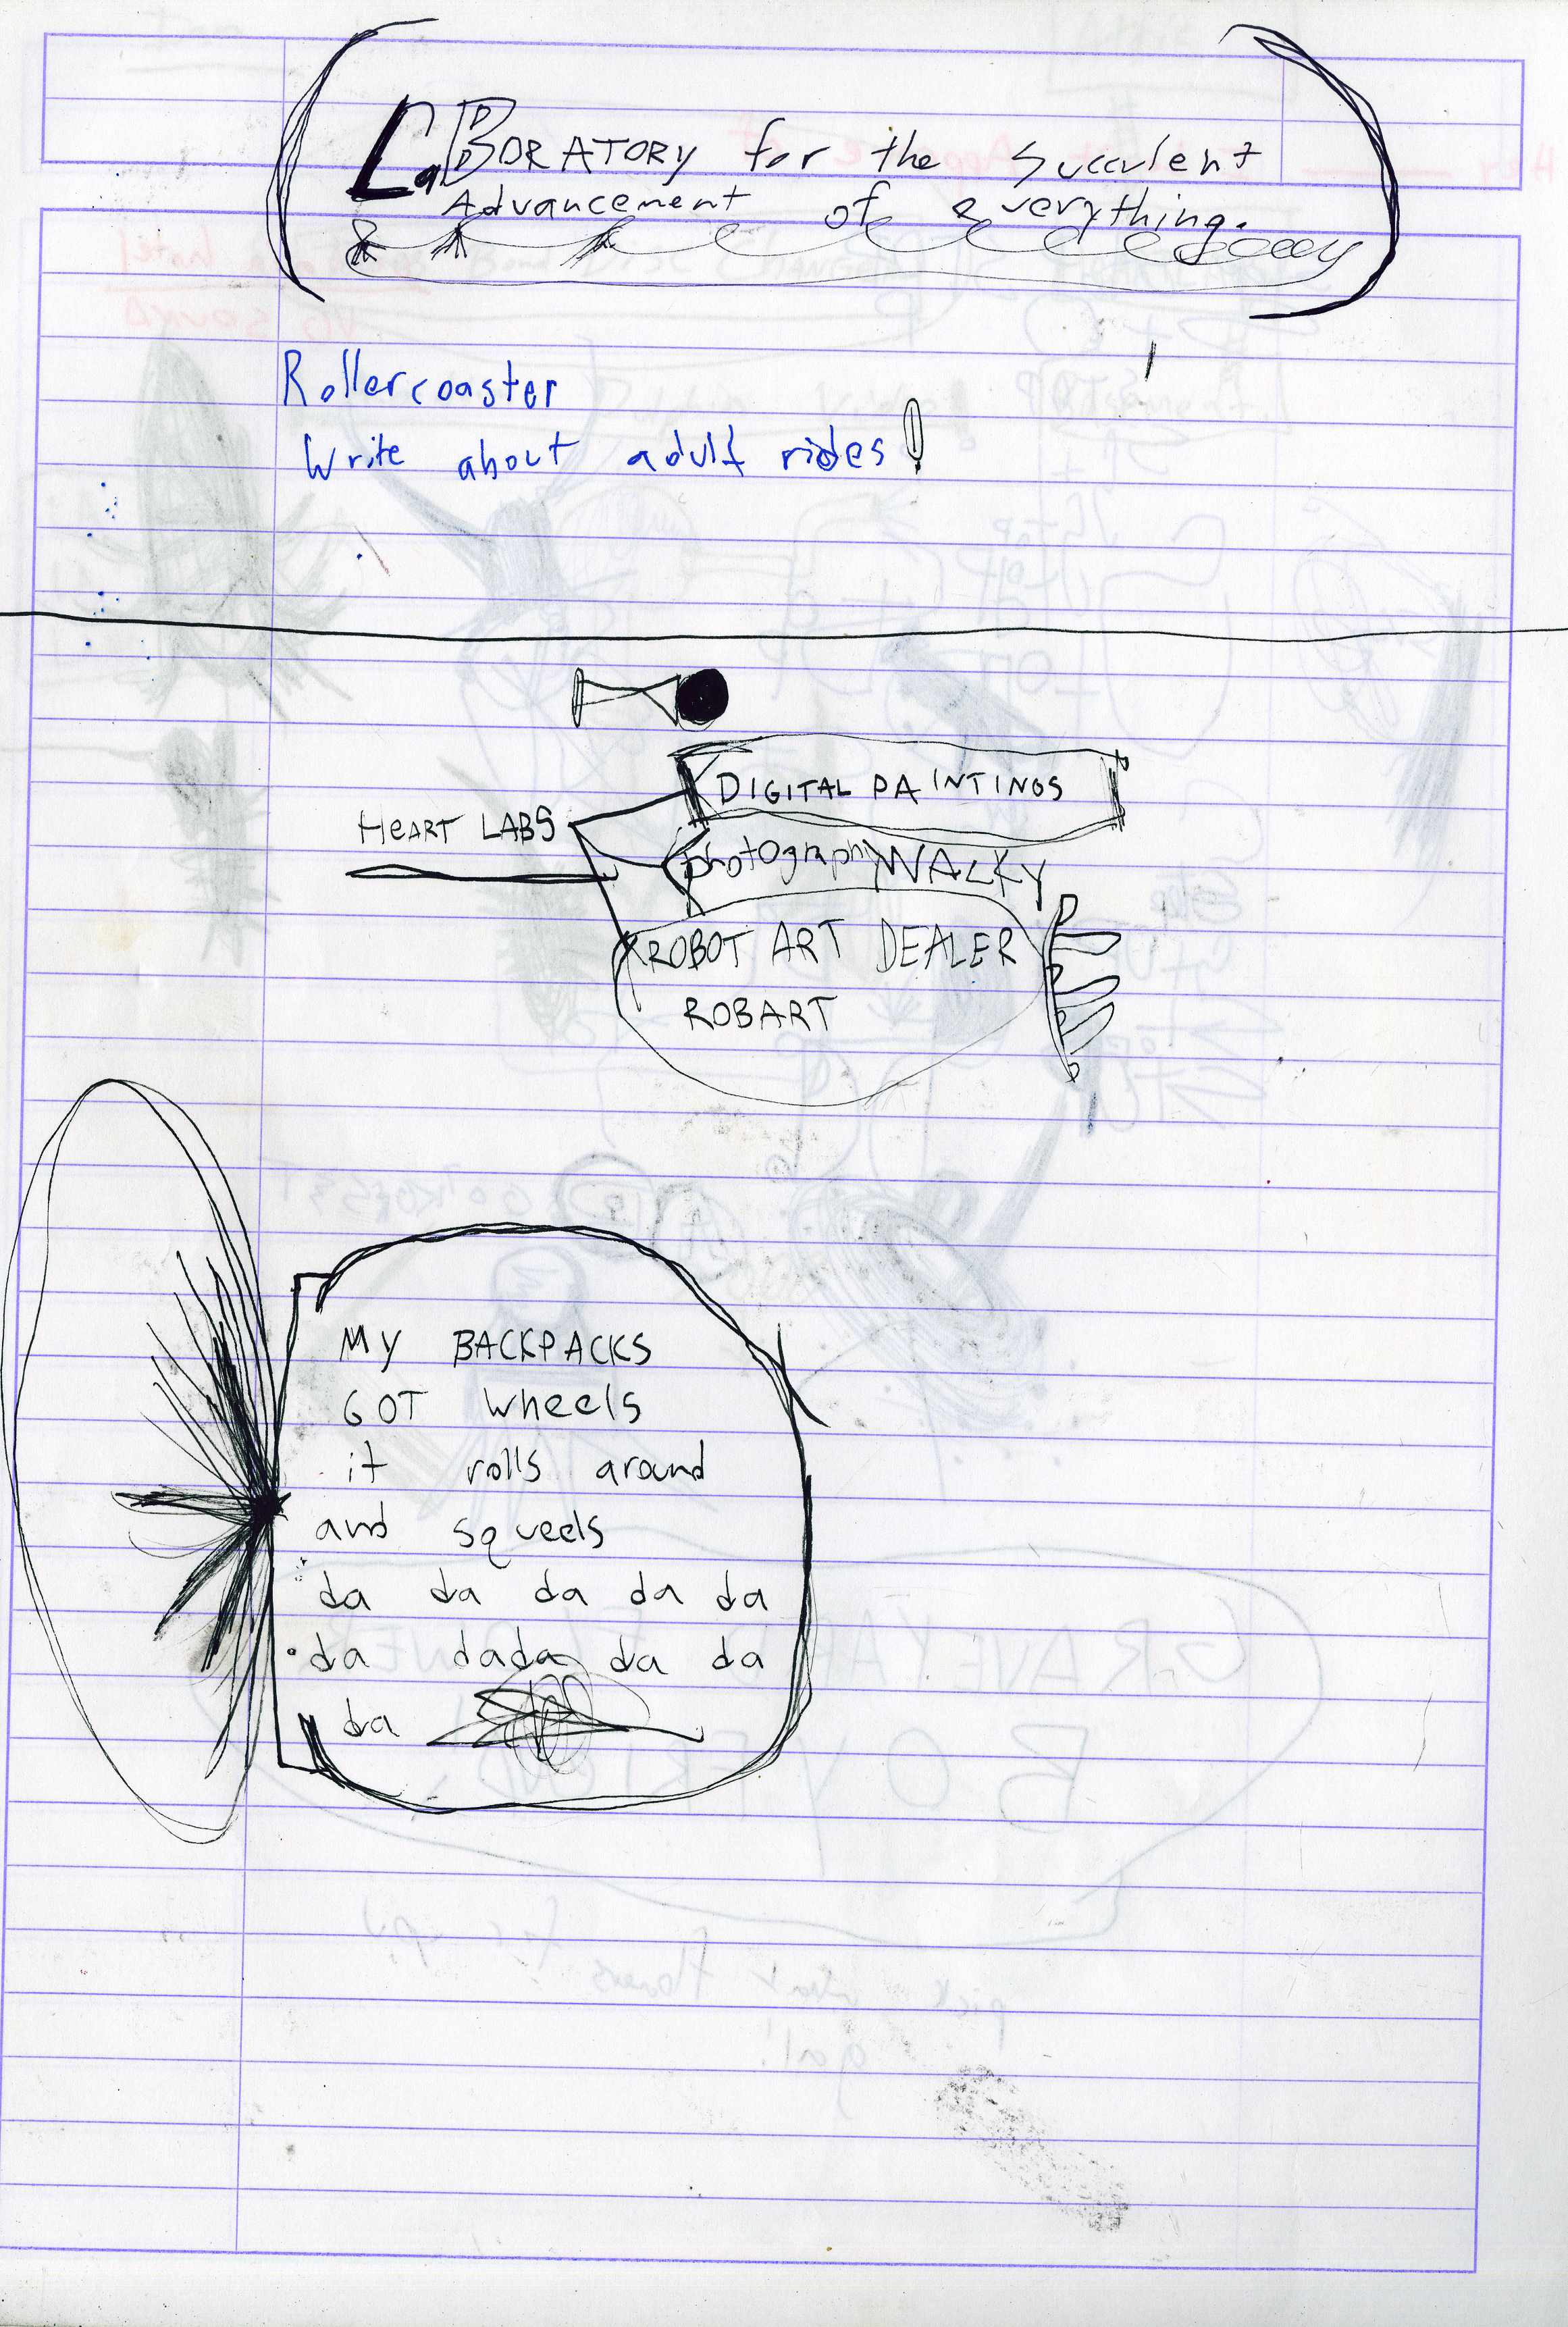 LaBORATORY for the succulent
Advancement of everything.
Rollercoaster
Write about adult rides
HEART LABS
DIGITAL PAINTINGS
photography WALKY
ROBOT ART DEALER
ROBART
MY BACKPACKS
GOT wheels
it rolls around
and squeels
da da da da da
da dada da da
da